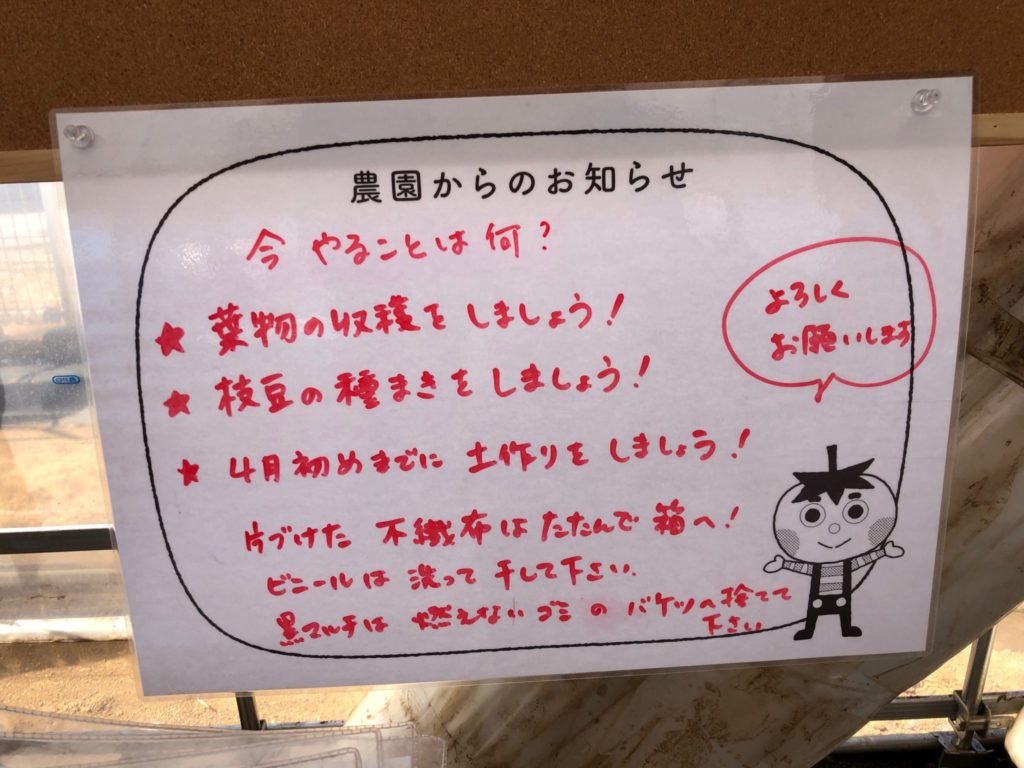 農園からのお知らせ
今 やることは何?
★ 葉物の収穫をしましょう!
★ 枝豆の種まきをしましょう!
★ 4月初めまでに 土作りをしましょう!
片づけた 不織布はたたんで 箱へ!
ビニールは 洗って 干して下さい.
黒マルチは 燃えないゴミの バケツへ捨てて
下さい
よろしく
お願いします